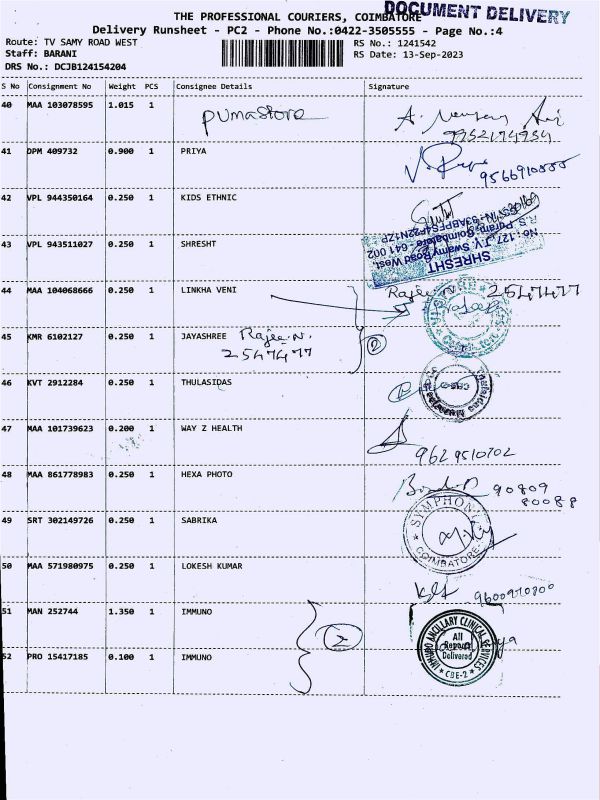 DOCUMENT DELIVERY
THE PROFESSIONAL COURIERS, COIMBATORE
Delivery Runsheet - PC2 - Phone No.:0422-3505555 - Page No.:4
Route: TV SAMY ROAD WEST
Staff: BARANI
DRS No.: DCJB124154204
RS No.: 1241542
RS Date: 13-Sep-2023
S No Consignment No Weight PCS Consignee Details Signature
40 MAA 103078595 1.015 1 pumastore
9952174954
41 DPM 409732 0.900 1 PRIYA
42 VPL 944350164 0.250 1 KIDS ETHNIC
43 VPL 943511027 0.250 1 SHRESHT
SHRESHT
No: 127, T.V. Swamy Road West,
R.S. Puram, Coimbatore - 641 002
44 MAA 104068666 0.250 1 LINKHA VENI Rajee.N. 2547477
45 KMR 6102127 0.250 1 JAYASHREE Rajee.N.
2547477 2
46 KVT 2912284 0.250 1 THULASIDAS
Thulasidas
47 MAA 101739623 0.200 1 WAY Z HEALTH
9629510702
48 MAA 861778983 0.250 1 HEXA PHOTO 90809
80088
49 SRT 302149726 0.250 1 SABRIKA
SYMPHONY
COIMBATORE
50 MAA 571980975 0.250 1 LOKESH KUMAR
9600970800
51 MAN 252744 1.350 1 IMMUNO
2
52 PRO 15417185 0.100 1 IMMUNO
IMMUNO ANCILLARY CLINICAL SERVICES
All
Reports
Delivered
* CBE-2 *